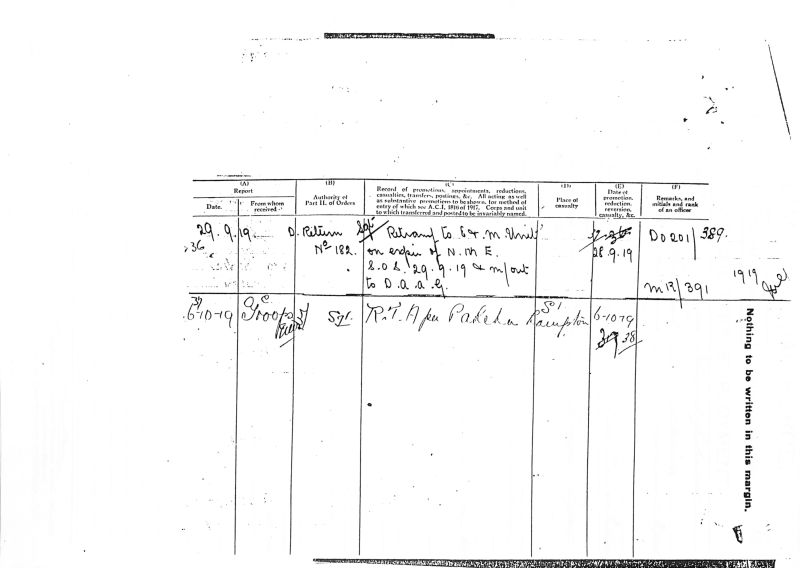 (A)
Report
Date.
From whom received.
(B)
Authority of
Part II. of Orders
(C)
Record of promotions, appointments, reductions,
casualties, transfers, postings, &c. All acting as well
as substantive promotions to be shown, for method of
entry of which see A.C.I. 1816 of 1917. Corps and unit
to which transferred and posted to be invariably named.
(D)
Place of
casualty
(E)
Date of
promotion,
reduction,
reversion,
casualty, &c.
(F)
Remarks, and
initials and rank
of an officer
29.9.19 D. Return Sgt to E & M
36 No 182. on expir of N. M E. 28.9.19 D0201/389.
S.O.S. 29.9.19 & m/out
to D.a.a.G. MR/391 1919
6-10-19 Troops Sgt. R.T. 6-10-19
38
Nothing to be written in this margin.